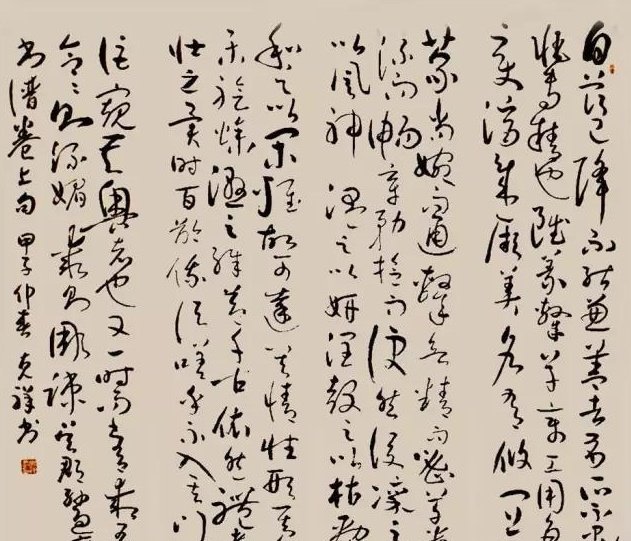 自茲已降不能兼善者有所不逮
非專精也雖篆隸草章工用多
變濟成厥美各有攸宜
篆尚婉而通隸欲精而密草貴
流而暢章務檢而便然後凜之
以風神溫之以妍潤鼓之以枯勁
和之以閑雅故可達其情性形其
樂驗燥濕之殊節千古依然體老
壯之異時百齡俄頃嗟乎不入其門
詎窺其奧者也又一時而書有乖
合合則流媚乖則雕疏
書譜卷上句 甲子仲春 克祥書